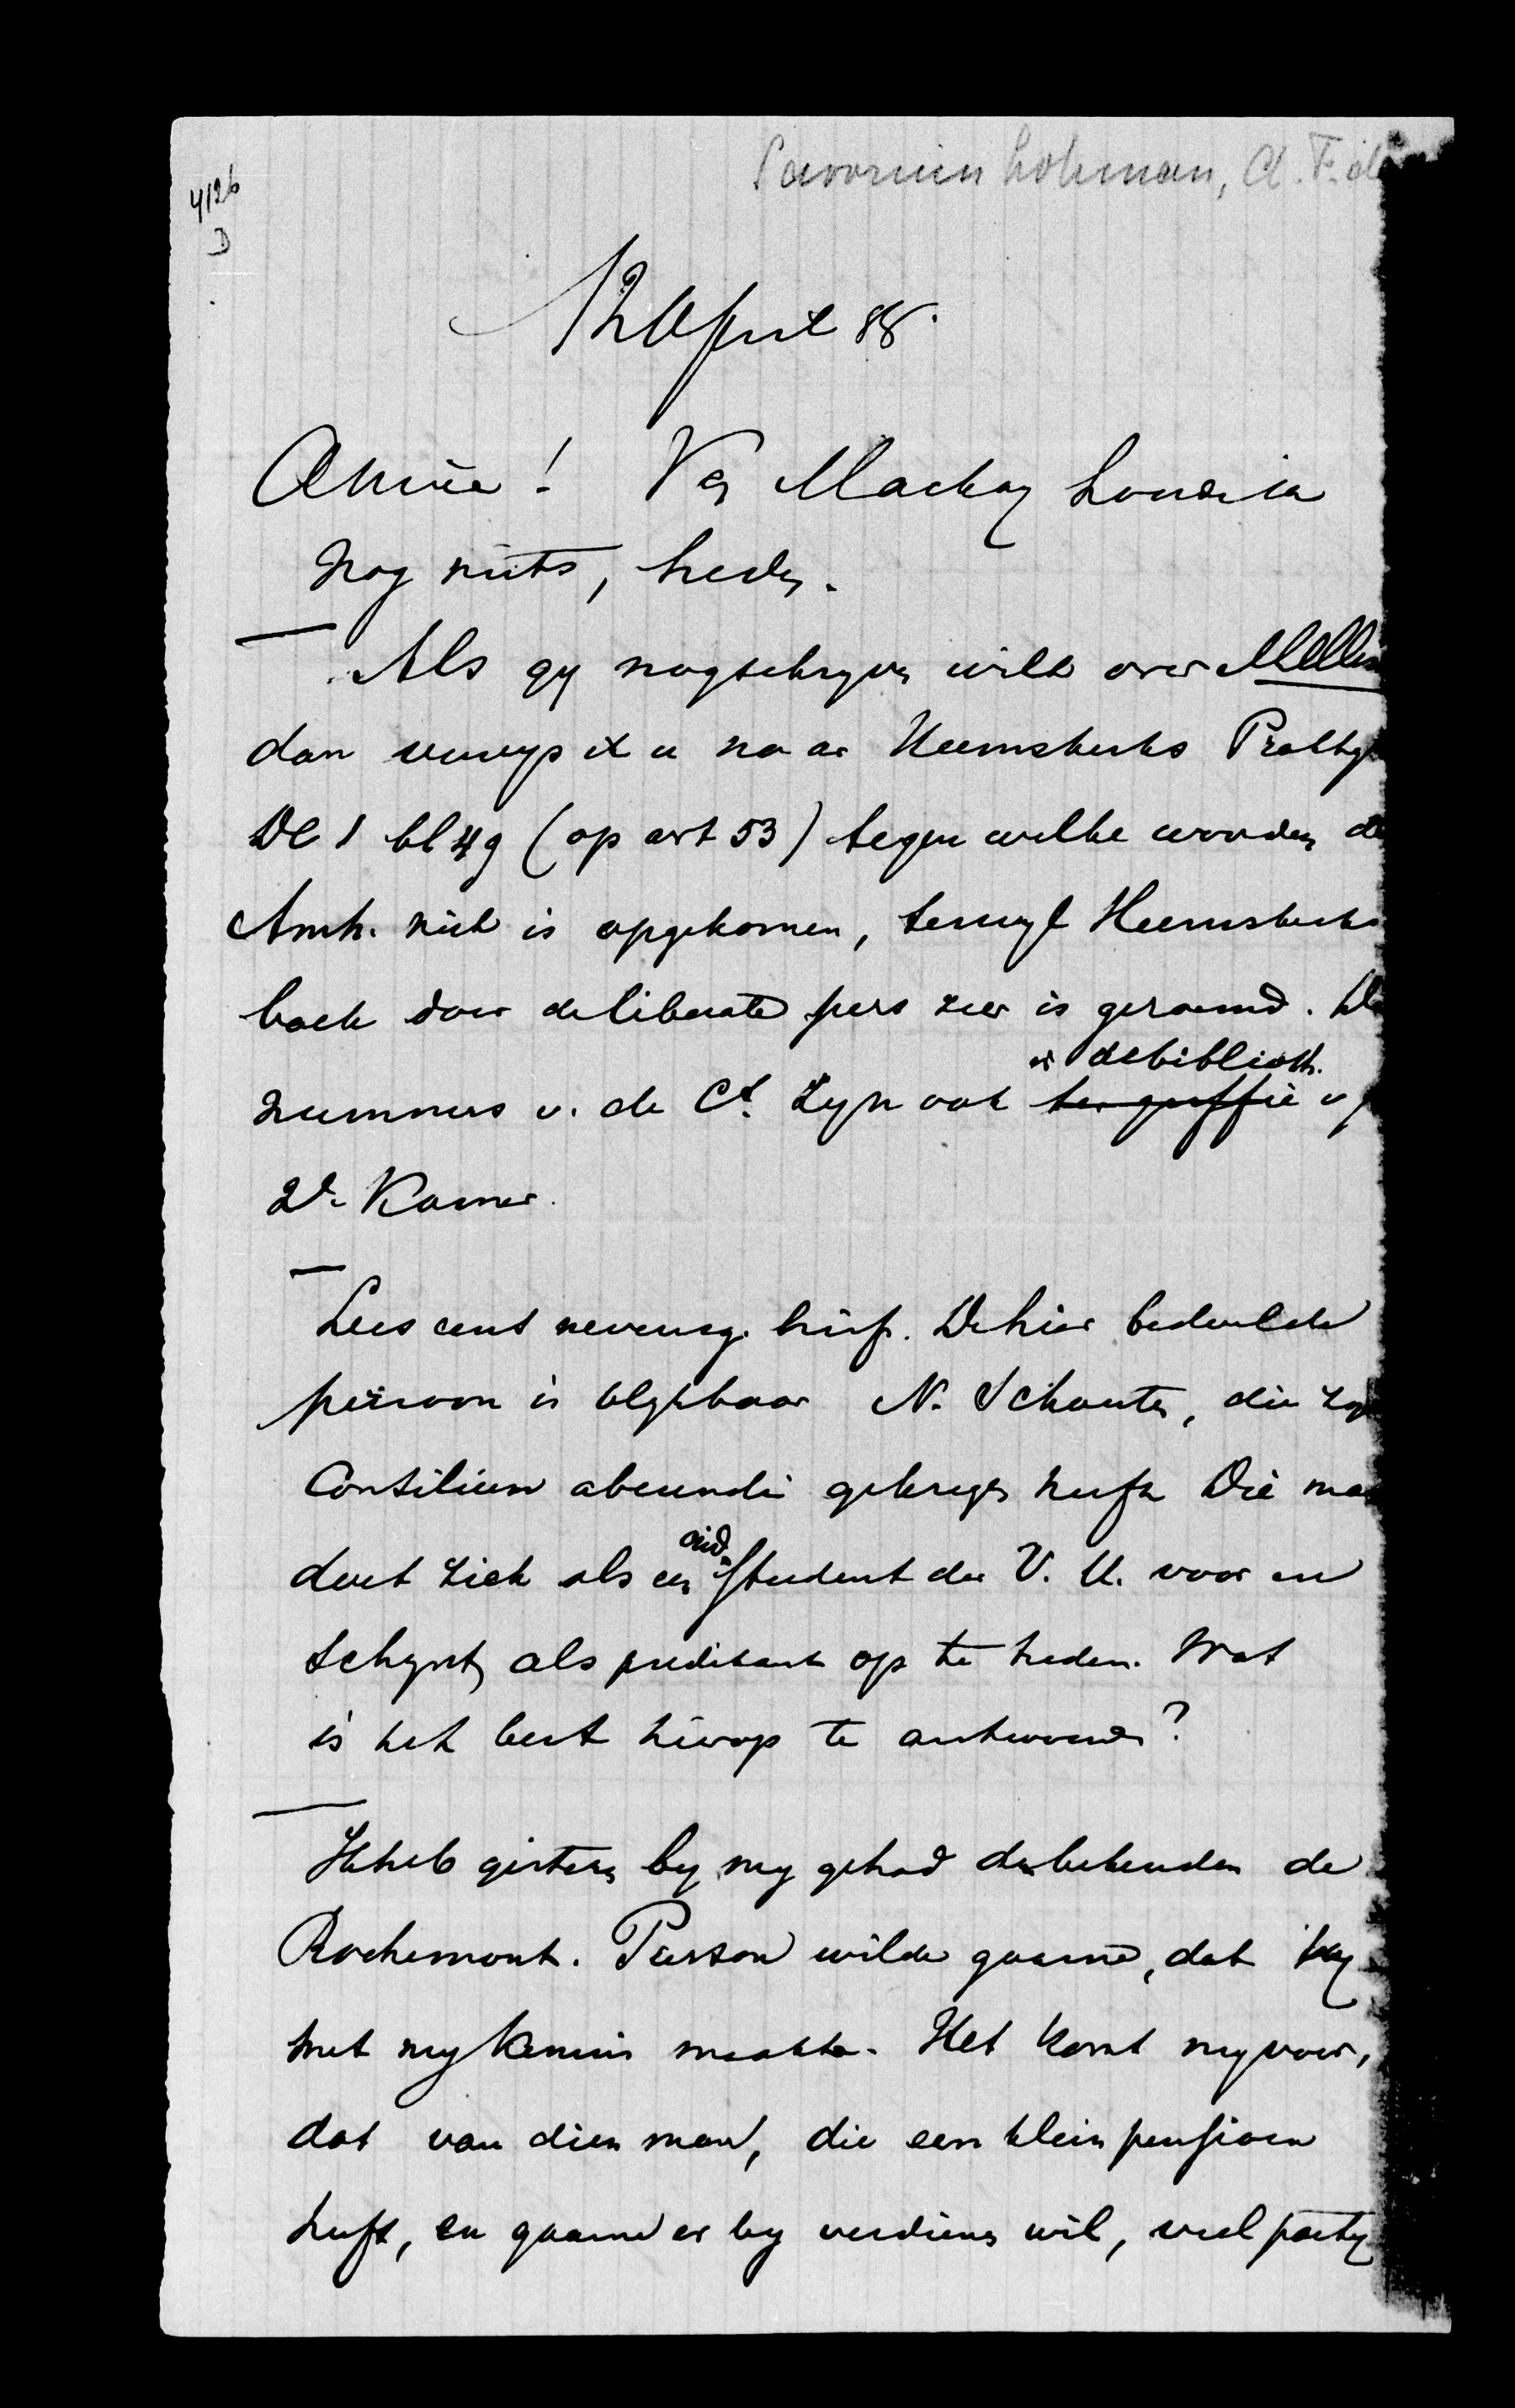 Savornin Lohman, A. F. de
4126
D
12 April 88.
Amice! Van Mackay hoorde ik
nog niets, heden.
Als gy nog schryven wilt over
dan verwys ik u naar Heemskerks
Dl 1 bl 49 (op art 53) tegen welke woorden de
Amh. niet is opgekomen, terwyl Heemskerks
boek door de liberale pers zeer is geroemd. De
nummers v. de Ct. zyn ook ter griffie v/
op de biblioth.
2e Kamer.
Lees eens nevensg. brief. De hier bedoelde
persoon is blykbaar N. Schouten, die zyn
Consilium abeundi gekregen heeft. Die man
doet zich als een oud student der V. U. voor en
schynt als predikant op te treden. Wat
is het best hierop te antwoorden?
Ik heb gisteren by my gehad den bekenden de
Rochemont. Pierson wilde gaarne, dat hy
met my kennis maakte. Het komt my voor,
dat van dien man, die een klein pensioen
heeft, en gaarne er by verdienen wil, veel party